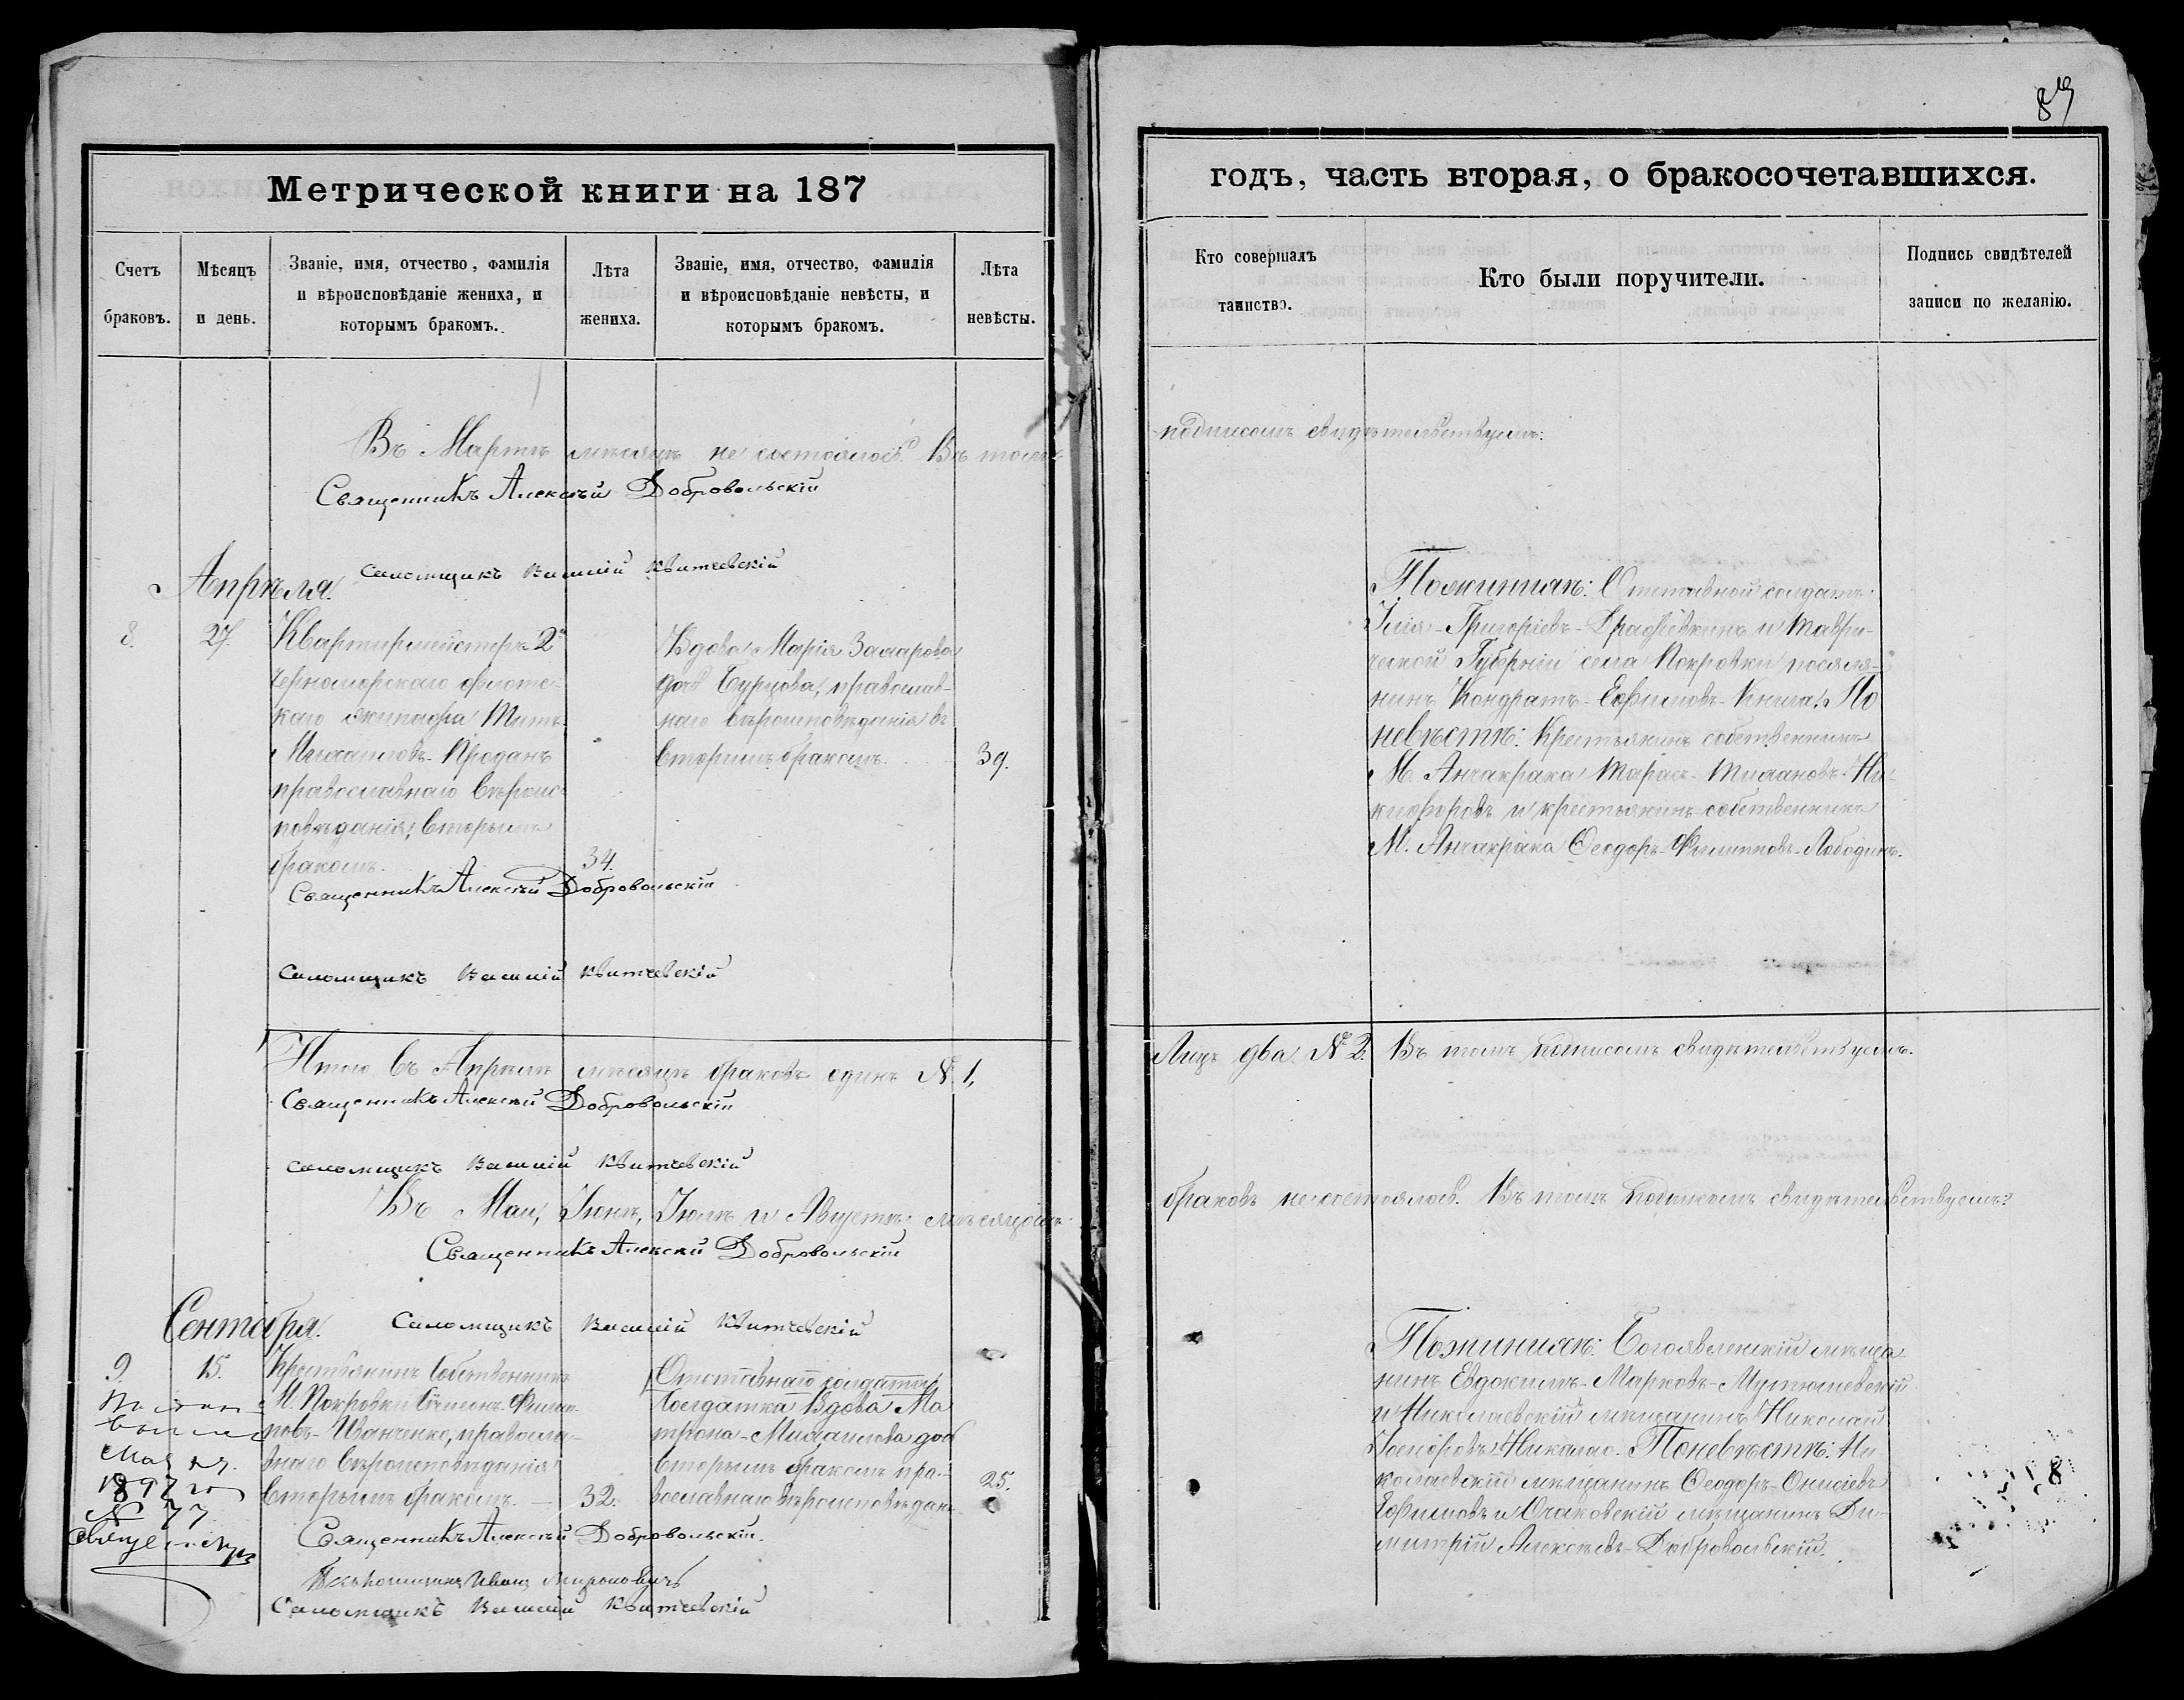 87
Метрической книги на 187
годъ, часть вторая, о бракосочетавшихся.
Счетъ браковъ.
Мѣсяцъ и день.
Званіе, имя, отчество, фамилія и вѣроисповѣданіе жениха, и которымъ бракомъ.
Лѣта жениха.
Званіе, имя, отчество, фамилія и вѣроисповѣданіе невѣсты, и которымъ бракомъ.
Лѣта невѣсты.
Кто совершалъ таинство.
Кто были поручители.
Подпись свидѣтелей записи по желанію.
Въ Мартѣ мѣсяцѣ не состоялось. Въ томъ
подписомъ свидѣтельствуемъ:
Священникъ Алексѣй Добровольскій
Псаломщикъ Василій Квитчевскій
Апрѣля.
8.
27.
Квартирмейстеръ 2го
Черноморскаго флотс-
каго экипажа
Михаиловъ Проданъ
православнаго вѣроис-
повѣданія, вторымъ
бракомъ.
34.
Вдова Марія Захарова
дочь Бурцова, православ-
наго вѣроисповѣданія
вторымъ бракомъ.
39.
По женихѣ: Отставной солдатъ
Илія Григоріевъ и Таври-
ческой Губерніи села Покровки поселя-
нинъ Кондратъ Ефимовъ Книга. По
невѣстѣ: Крестьянинъ собственникъ
М. Анчакрака Тарасъ Ни-
кифоровъ и крестьянинъ собственникъ
М. Анчакрака Ѳеодоръ Филипповъ Лободинъ.
Священникъ Алексѣй Добровольскій
Псаломщикъ Василій Квитчевскій
Итого въ Апрѣлѣ мѣсяцѣ браковъ одинъ № 1,
Лицъ два № 2. Въ томъ подписомъ свидѣтельствуемъ.
Священникъ Алексѣй Добровольскій
Псаломщикъ Василій Квитчевскій
Въ Маи, Іюнѣ, Іюлѣ и Августѣ мѣсяцахъ
браковъ не состоялось. Въ томъ подписомъ свидѣтельствуемъ.
Священникъ Алексѣй Добровольскій
Псаломщикъ Василій Квитчевскій
Сентября.
9.
15.
Крестьянинъ Собственникъ
М. Покровки Симеонъ Филип-
повъ Иванченко, правосла-
внаго вѣроисповѣданія
вторымъ бракомъ.
32.
Отставнаго солдата
Солдатка Вдова Ма-
трона Михаилова дочь
вторымъ бракомъ пра-
вославнаго вѣроисповѣдан.
25.
По женихѣ: Богоявленскій мѣща-
нинъ Евдокимъ Марковъ
и Николаевскій мѣщанинъ Николай
По невѣстѣ: Ни-
колаевскій мѣщанинъ Ѳеодоръ
Ефимовъ и Очаковскій мѣщанинъ Ди-
митрій Алексѣевъ Добровольскій.
Мая
1897 год
№ 77
Священникъ Алексѣй Добровольскій.
Иванъ
Псаломщикъ Василій Квитчевскій